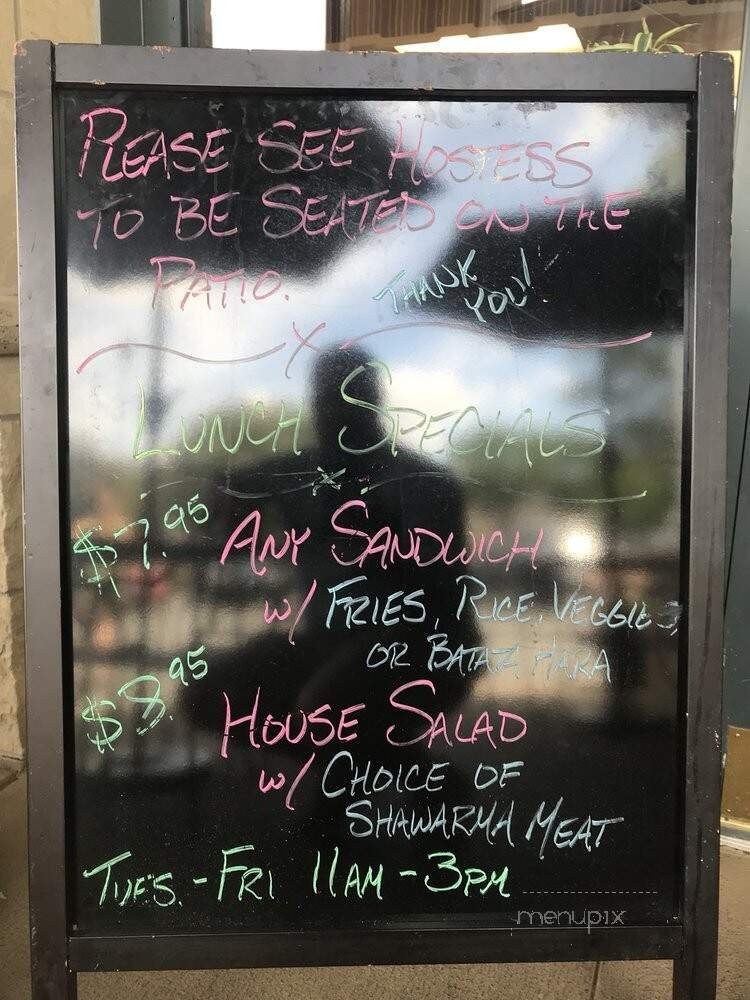 PLEASE SEE HOSTESS
TO BE SEATED ON THE
PATIO. THANK
YOU!
LUNCH SPECIALS
$7.95 ANY SANDWICH
w/ FRIES, RICE, VEGGIES,
OR BATATA HARA
$8.95 HOUSE SALAD
w/ CHOICE OF
SHAWARMA MEAT
TUES.-FRI 11AM-3PM
menupix